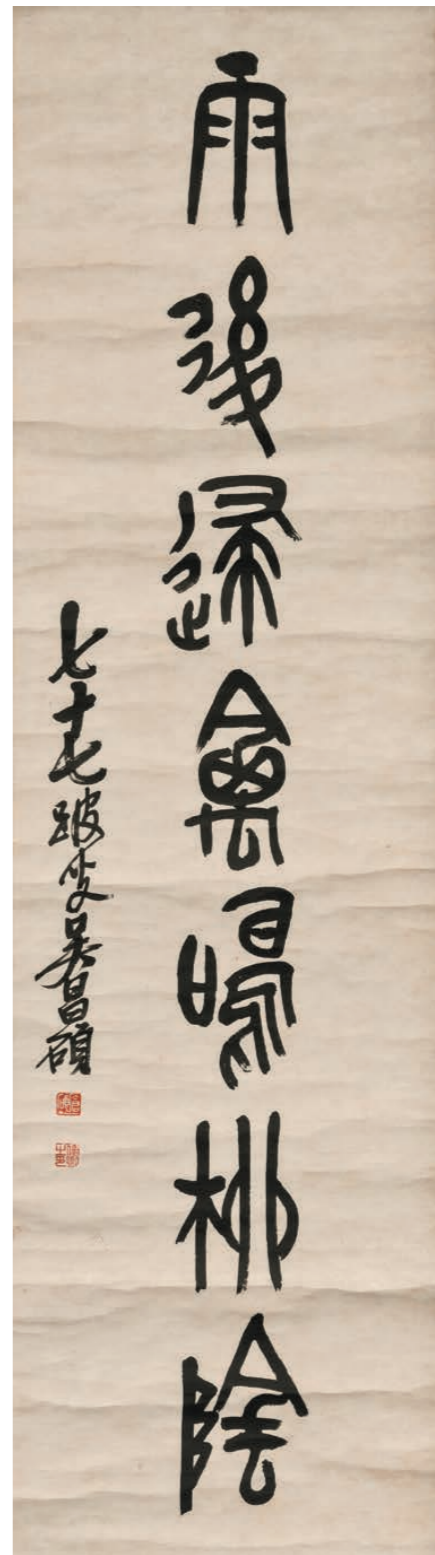 雨後歸禽鳴柳陰
七十七跛叟吳昌碩